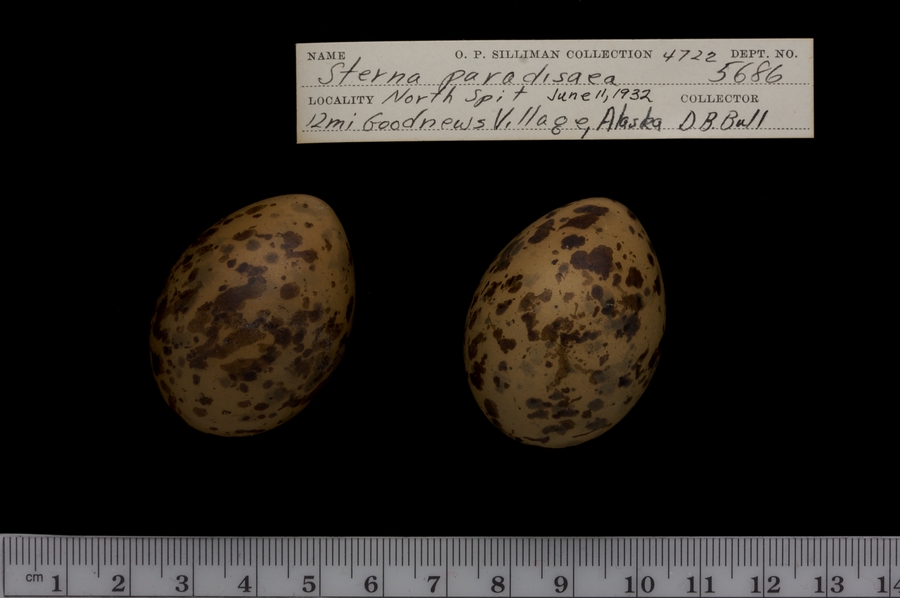 NAME O. P. SILLIMAN COLLECTION 4722 DEPT. NO.
Sterna paradisaea 5686
LOCALITY North Spit June 11, 1932 COLLECTOR
12mi Goodnews Village, Alaska D.B. Bull
cm 1 2 3 4 5 6 7 8 9 10 11 12 13 14